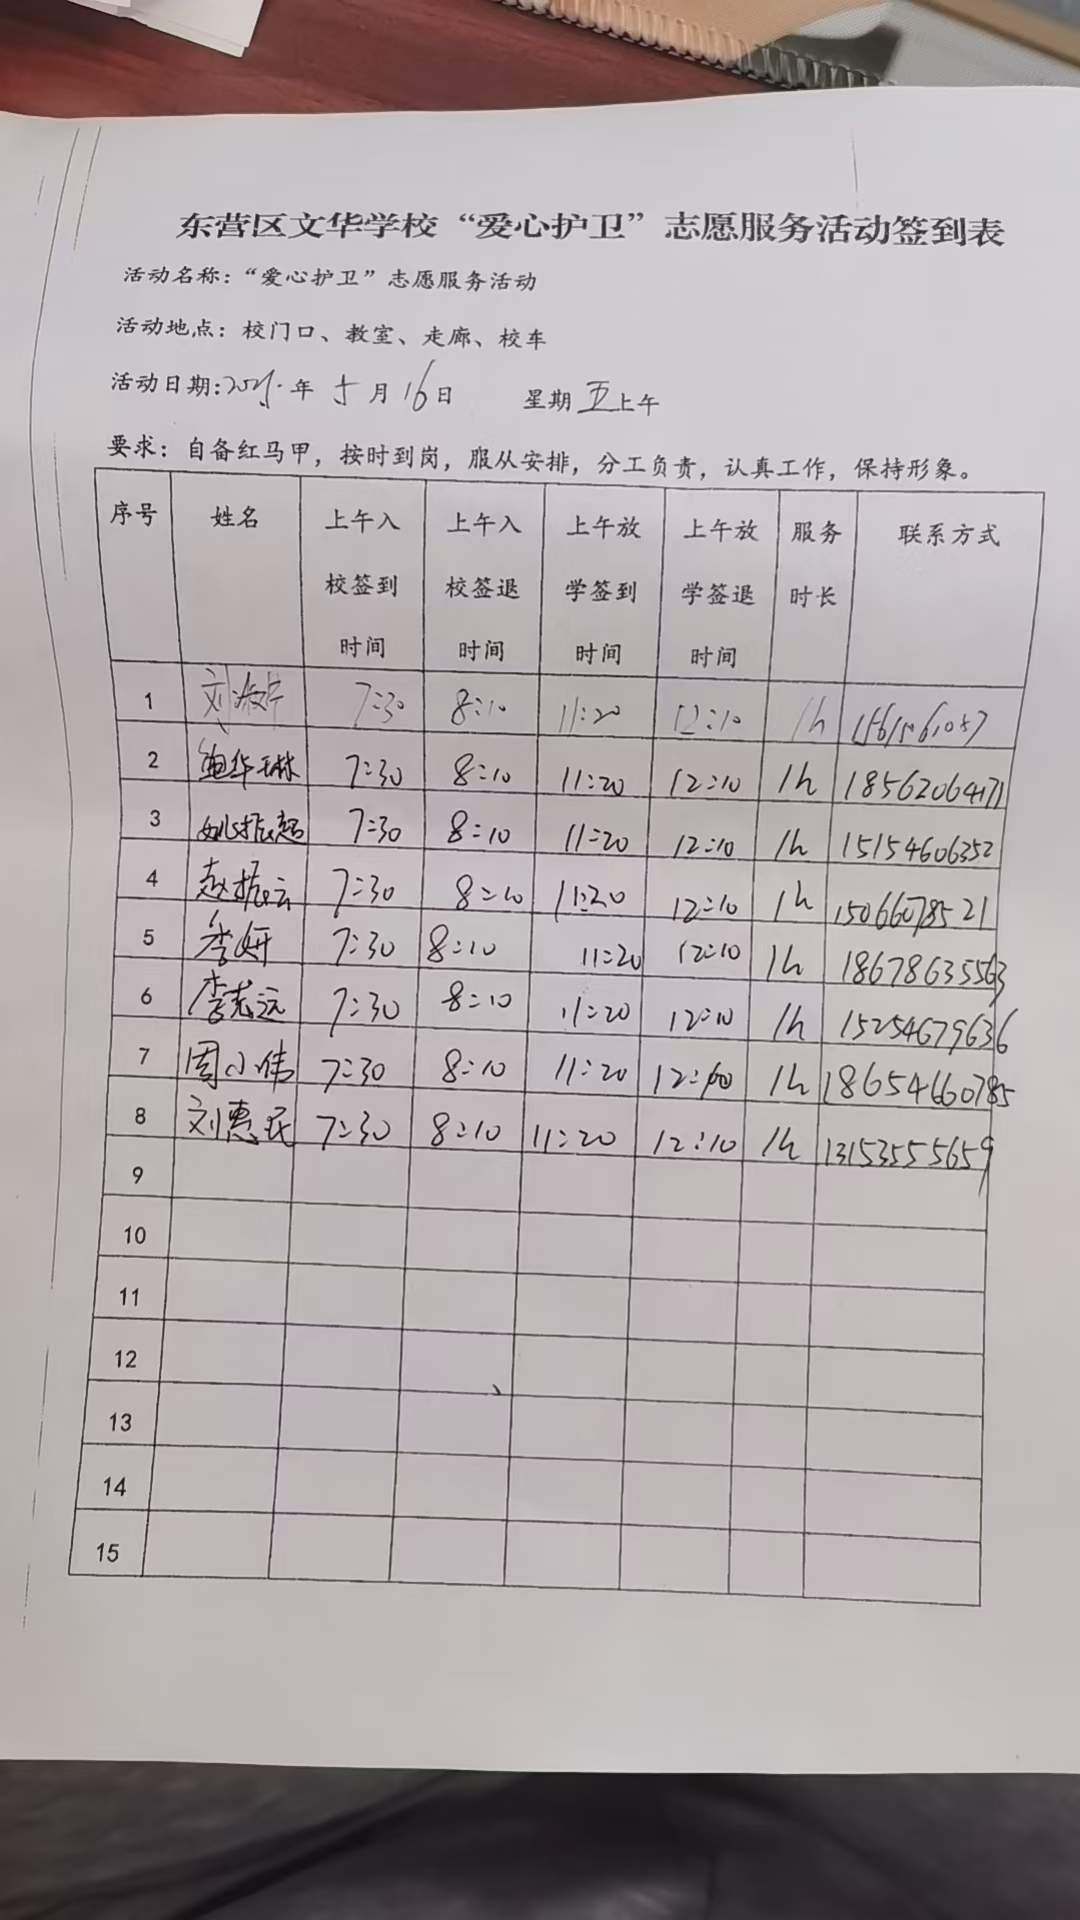 东营区文华学校“爱心护卫”志愿服务活动签到表
活动名称：“爱心护卫”志愿服务活动
活动地点：校门口、教室、走廊、校车
活动日期:2025.年 5月16日 星期五上午
要求：自备红马甲，按时到岗，服从安排，分工负责，认真工作，保持形象。
序号 姓名 上午入校签到时间 上午入校签退时间 上午放学签到时间 上午放学签退时间 服务时长 联系方式
1 刘 7:30 8:10 11:20 12:10 1h
2 鲍华琳 7:30 8:10 11:20 12:10 1h 18562064171
3 姚振超 7:30 8:10 11:20 12:10 1h 15154606352
4 赵振云 7:30 8:10 11:20 12:10 1h 15066078521
5 季妍 7:30 8:10 11:20 12:10 1h 18678635563
6 李志远 7:30 8:10 11:20 12:10 1h 15254679636
7 周小伟 7:30 8:10 11:20 12:10 1h 18654660785
8 刘惠民 7:30 8:10 11:20 12:10 1h 13153555659
9
10
11
12
13
14
15